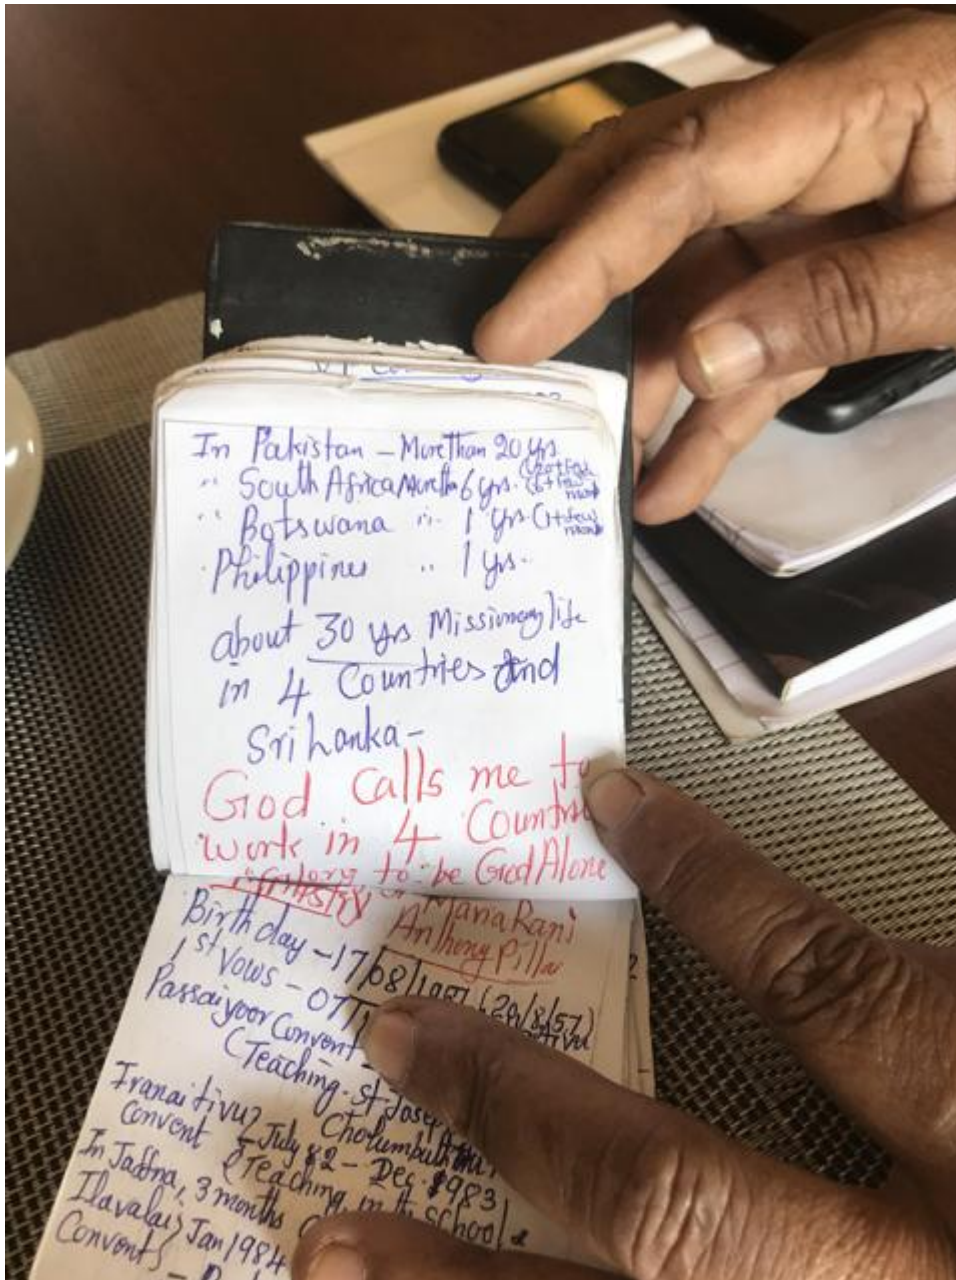 In Pakistan - More Than 20 yrs
" South Africa More than 6 yrs. (6+few
" Botswana " 1 yrs (1+few)
Philippines " 1 yrs.
about 30 yrs Missionary life
in 4 Countries and
Sri Lanka -
God calls me to
work in 4 Countries
to be God Alone
Maria Rani
Anthony Pillai
Birth day - 17/08/1957 (29/8/57)
1st Vows - 07
Passaiyoor Convent
(Teaching. St. Joseph
Iranaitivu July 82 - Dec. 1983
Convent (Teaching in the School &
In Jaffna, 3 months
Ilavalai Jan 1984
Convent